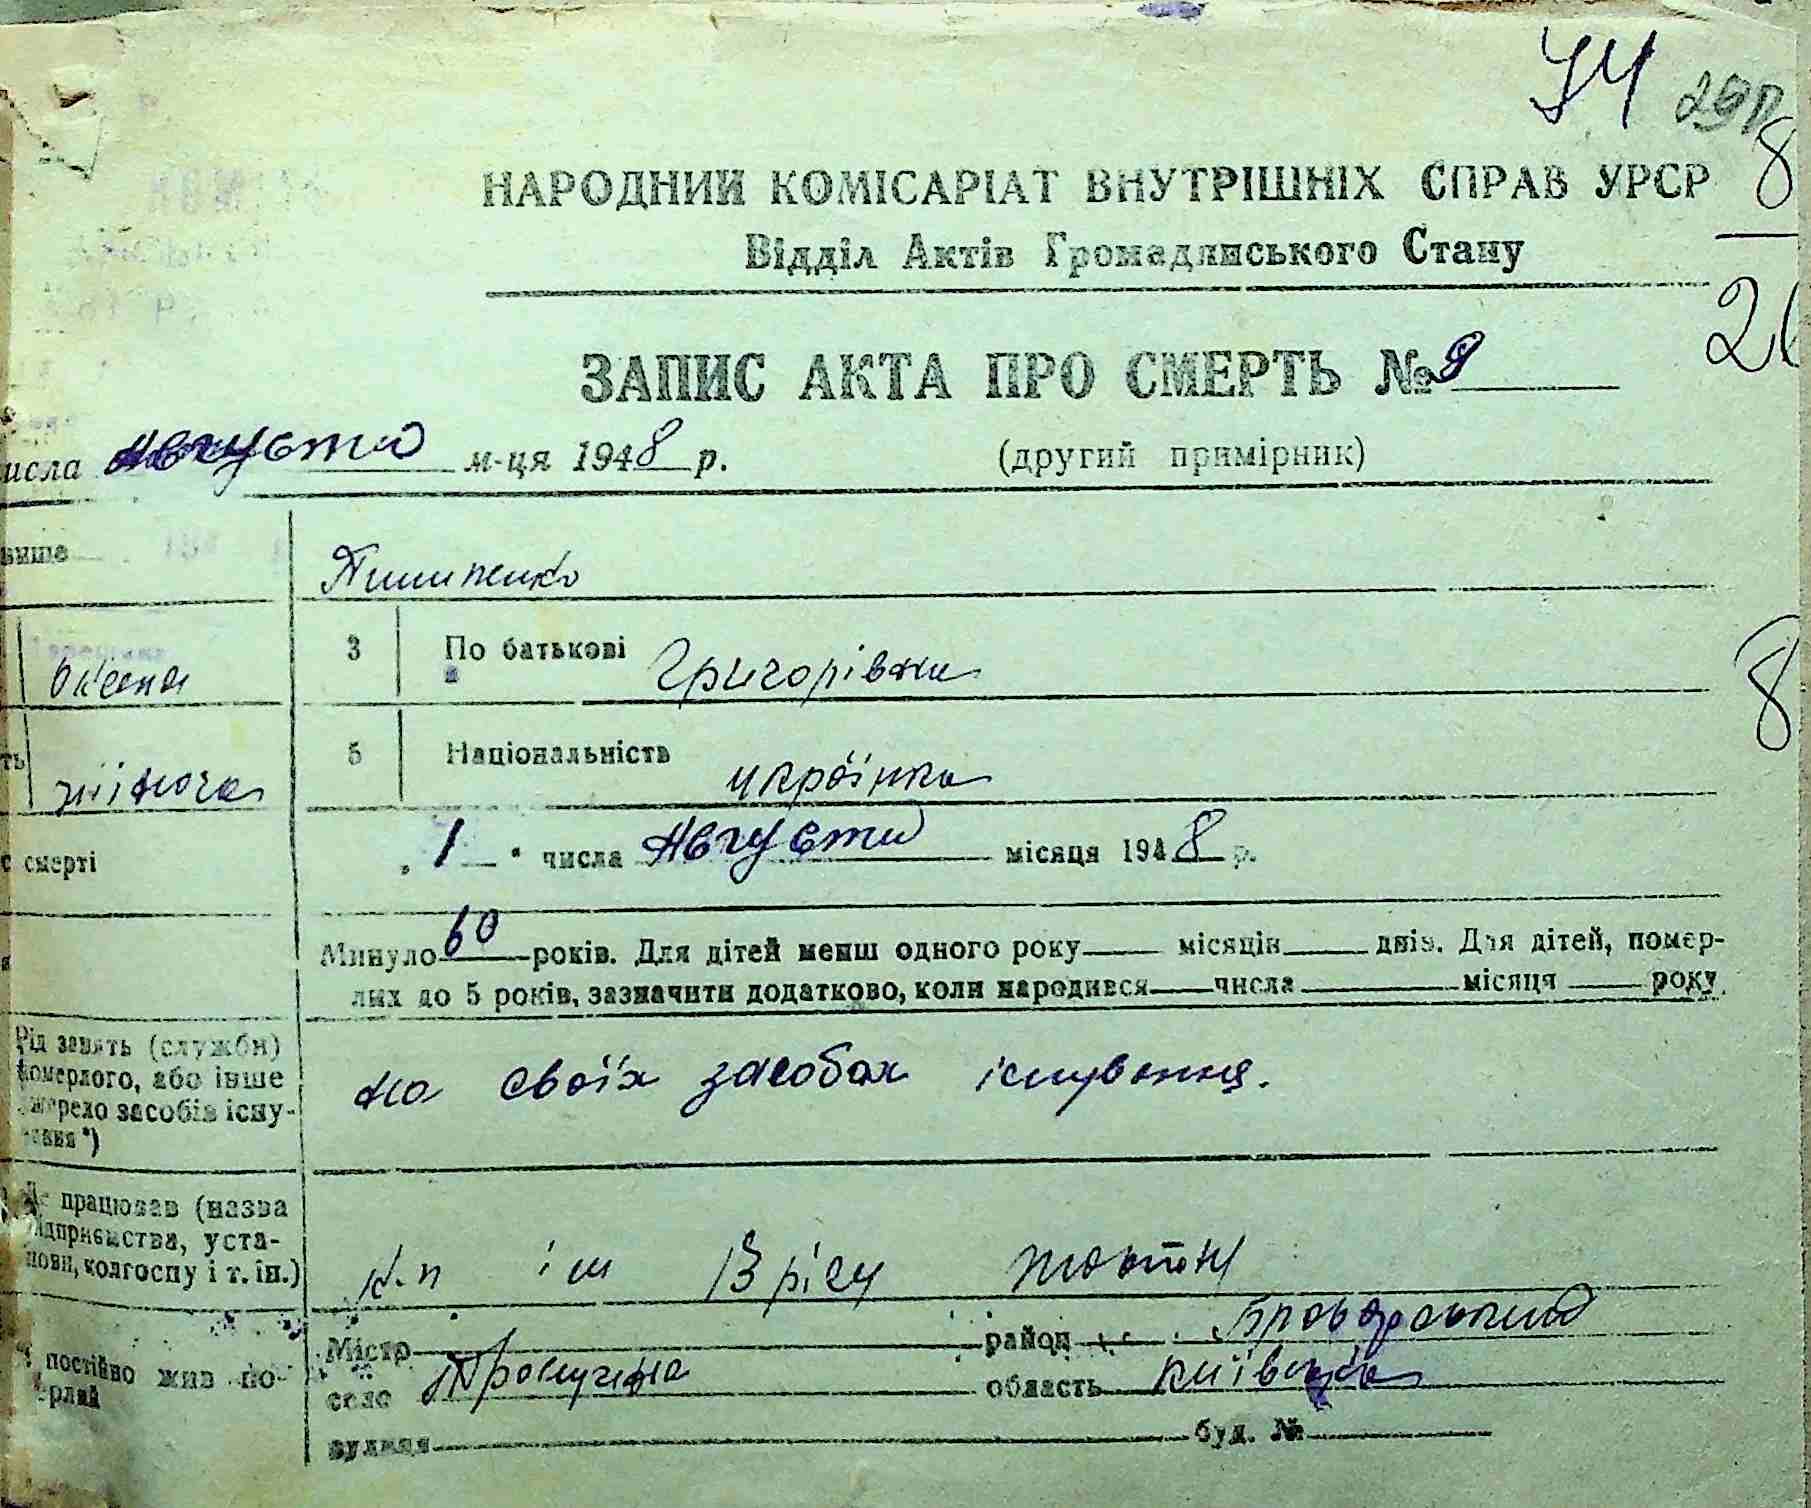 УЧ
8
НАРОДНИЙ КОМІСАРІАТ ВНУТРІШНІХ СПРАВ УРСР
Відділ Актів Громадянського Стану
ЗАПИС АКТА ПРО СМЕРТЬ № 9
исла августа м-ця 1948 р. (другий примірник)
вище
Пилипенко
Оксана 3 По батькові Григорівна
8
ть жіноча 5 Національність українка
с смерті „1" числа августа місяця 1948 р.
Минуло 60 років. Для дітей менш одного року місяців днів. Для дітей, помер-
лих до 5 років, зазначити додатково, коли народився числа місяця року
Рід занять (служби)
померлого, або інше
джерело засобів існу-
вання*)
на своїх засобах існування.
Де працював (назва
підприємства, уста-
нови, колгоспу і т. ін.)
к-п ім 13 річ жовтн
постійно жив по-
ерлий
Місто район Броварський
село область київська
вулиця буд. №